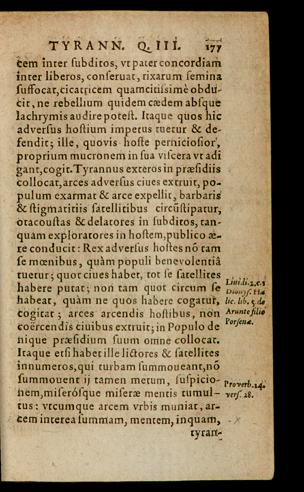 TYRANN. Q. III. 177
cem inter subditos, vt pater concordiam
inter liberos, conseruat, rixarum semina
suffocat, cicatricem quamcitissimè obdu-
cit, ne rebellium quidem cædem absque
lachrymis audire potest. Itaque quos hic
adversus hostium impetus tuetur & de-
fendit; ille, quovis hoste perniciosior,
proprium mucronem in sua viscera vt adi
gant, cogit. Tyrannus exteros in præsidiis
collocat, arces adversus ciues extruit, po-
pulum exarmat & arce expellit, barbaris
& stigmatitiis satellitibus circũstipatur,
otacoustas & delatores in subditos, tan-
quam exploratores in hostem, publico æ-
re conducit: Rex adversus hostes nõ tam
se mœnibus, quàm populi benevolentiâ
tuetur; quot ciues habet, tot se satellites
habere putat; non tam quot circum se
habeat, quàm ne quos habere cogatur,
cogitat; arces arcendis hostibus, non
coërcendis ciuibus extruit; in Populo de
nique præsidium suum omne collocat.
Itaque etsi habet ille lictores & satellites
innumeros, qui turbam summoueant, nõ
summouent ij tamen metum, suspicio-
nem, miserósque miseræ mentis tumul-
tus: vtcumque arcem vrbis muniat, ar-
cem interea summam, mentem, inquam,
tyran-
Liui. di. 2. c. 1
Dionys. Ha
lic. lib. 5. de
Arunte filio
Porsenæ.
Proverb. 14.
vers. 28.